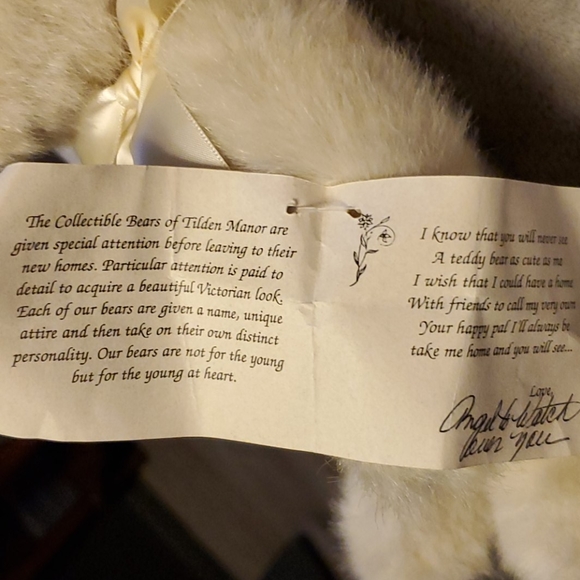 The Collectible Bears of Tilden Manor are
given special attention before leaving to their
new homes. Particular attention is paid to
detail to acquire a beautiful Victorian look.
Each of our bears are given a name, unique
attire and then take on their own distinct
personality. Our bears are not for the young
but for the young at heart.
I know that you will never see
A teddy bear as cute as me
I wish that I could have a home
With friends to call my very own
Your happy pal I'll always be
take me home and you will see...
Love,
Angel to Watch
Over You